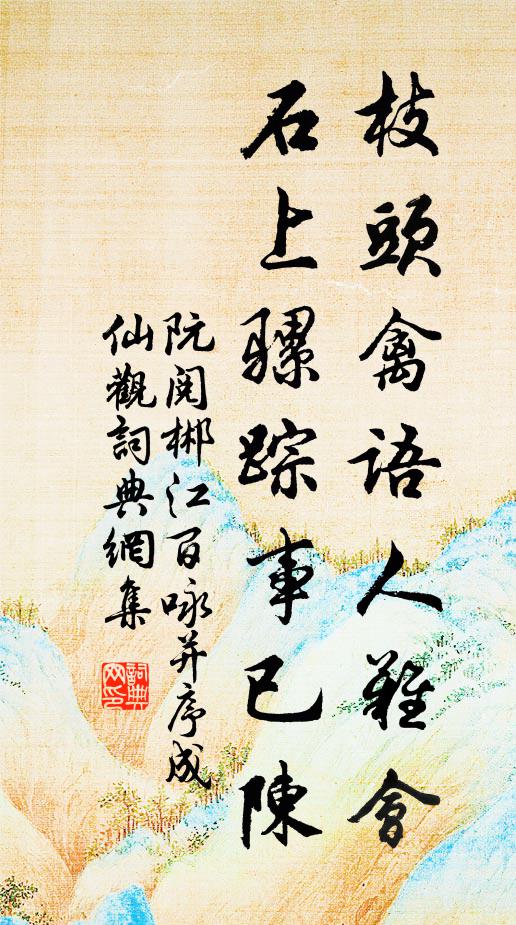 枝頭禽語人難會
石上騾踪事已陳
阮閱郴江百咏并序成
仙觀詞典網集
詞典
网印